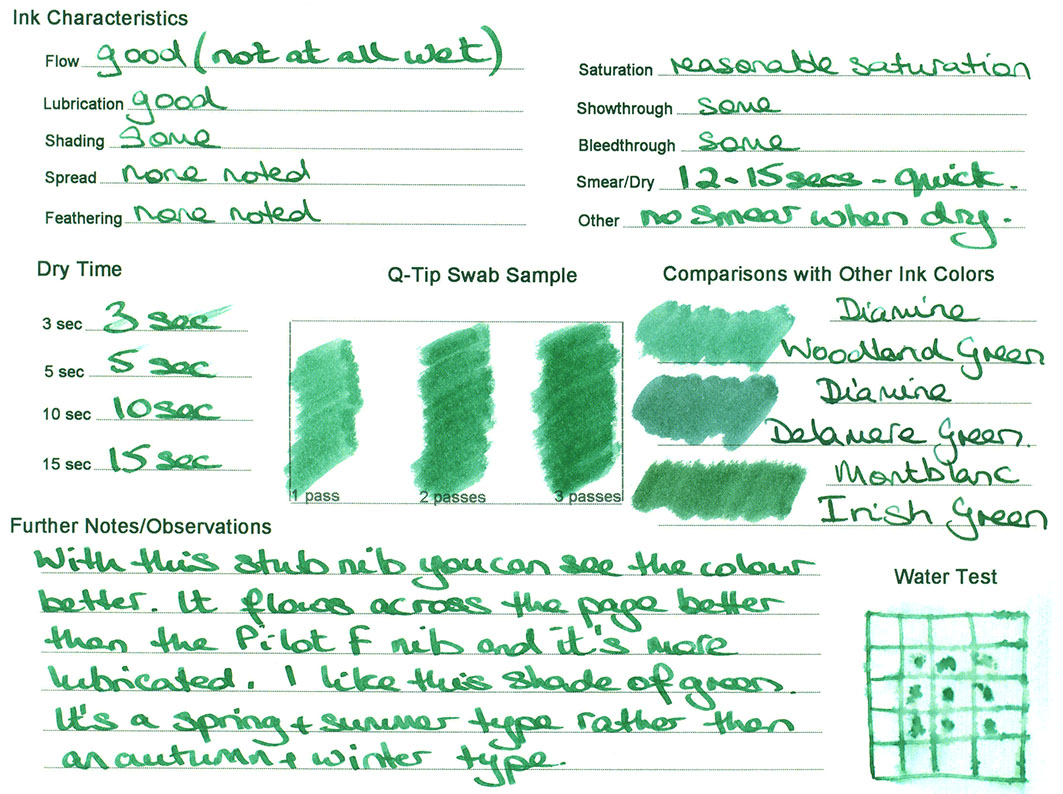 Ink Characteristics
Flow good (not at all wet)
Lubrication good
Shading some
Spread none noted
Feathering none noted
Saturation reasonable saturation
Showthrough some
Bleedthrough some
Smear/Dry 12-15secs - quick.
Other no smear when dry.
Dry Time
3 sec 3 sec
5 sec 5 sec
10 sec 10sec
15 sec 15 sec
Q-Tip Swab Sample
1 pass 2 passes 3 passes
Comparisons with Other Ink Colors
Diamine
Woodland Green
Diamine
Delamere Green.
Montblanc
Irish Green
Further Notes/Observations
With this stub nib you can see the colour
better. It flows across the page better
than the Pilot F nib and it's more
lubricated. I like this shade of green.
It's a spring + summer type rather than
an autumn + winter type.
Water Test